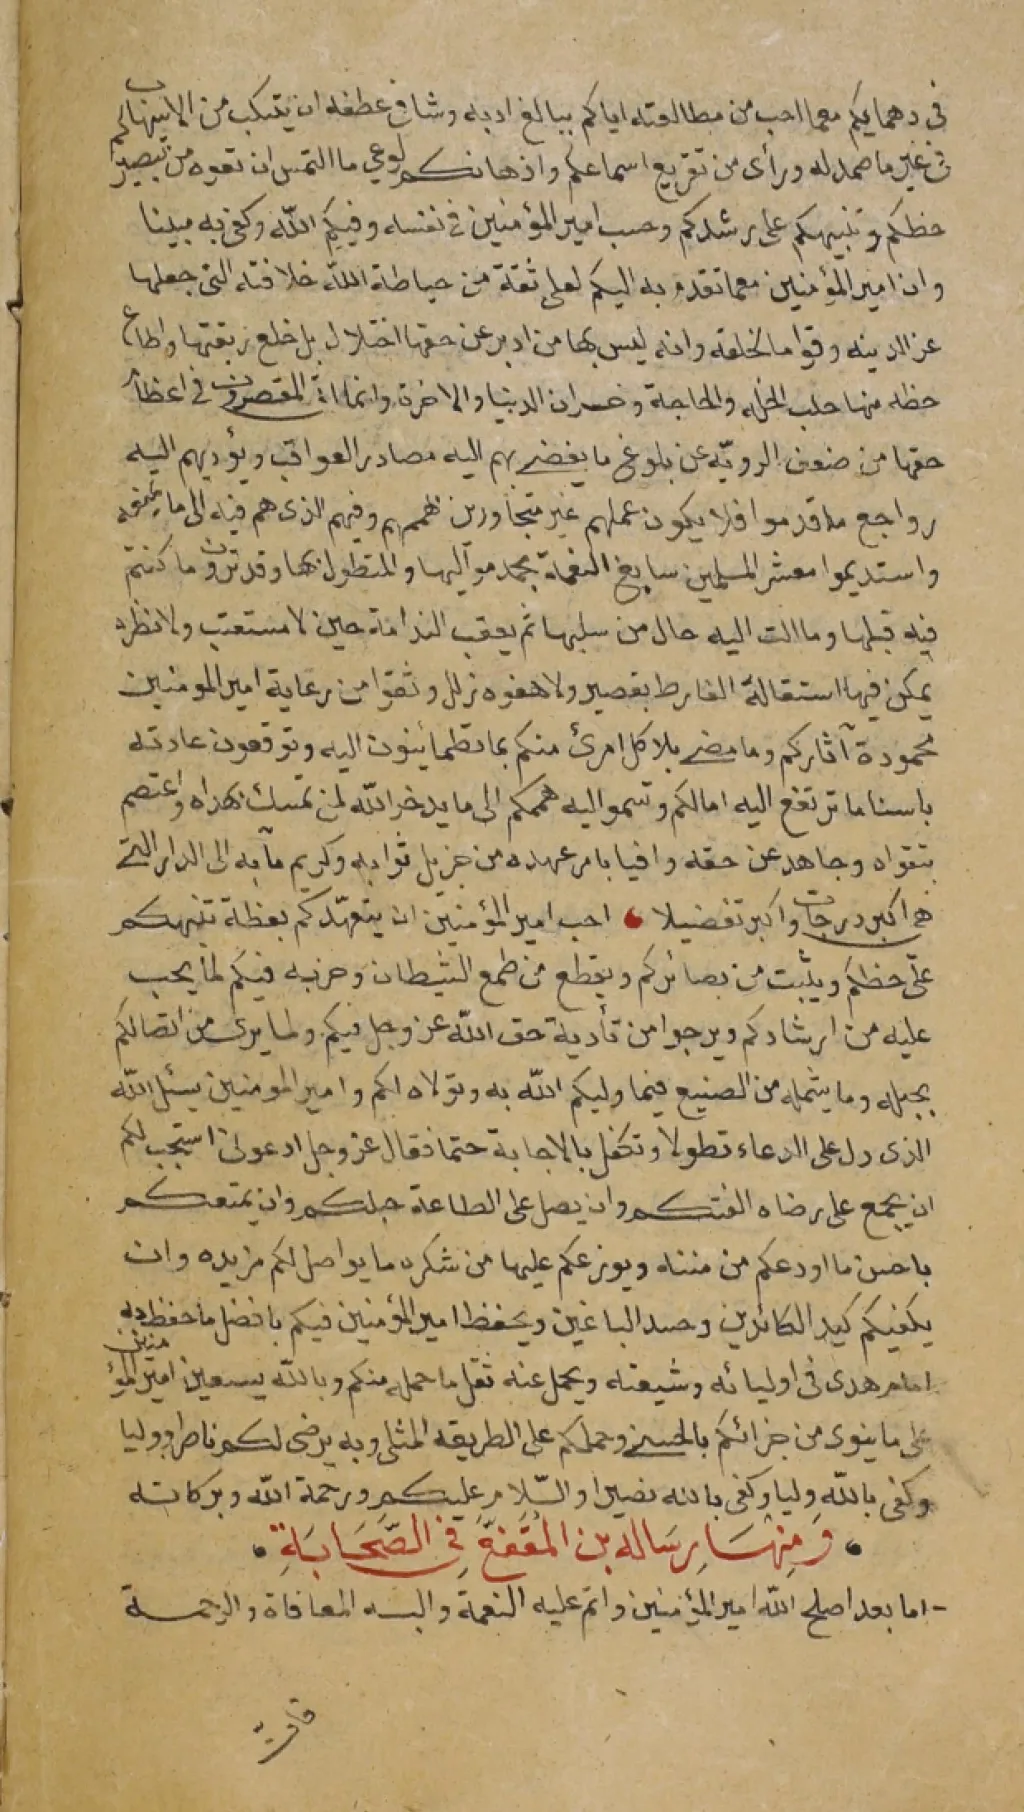 في دهمايكم معما احب من مطالعته اياكم ببالغ ادبه وشافي عطفه ان يتنكب من الاسهاب لكم
في غير ما صمد له ورأى من تقريع اسماعكم واذهانكم لوعي ما التمس ان تعوه من تبصير
حظكم وتنبيهكم على رشدكم وحسب امير المؤمنين في نفسه وفيكم الله وكفى به مبينا
وان امير المؤمنين معما تقدم به اليكم لعلى ثقة من حياطة الله خلافته التي جعلها
عز الدينه وقواما لخلقه وانه ليس بها من ادبر عن حقها اختلال بل خلع ربقتها واطاع
حظه منها حلب الخلة والحاجة وخسران الدنيا والاخرة وانما اتى المقصرون في اعظام
حقها من ضعف الروية عن بلوغ ما يفضي بهم اليه مصادر العواقب ويؤديهم اليه
رواجع ما قدموا فلا يكون عملهم غير متجاوزين هممهم وفيهم الذي هم فيه الى ما
واستديموا معشر المسلمين سابغ النعمة بحمد موآليها والمتطول بها وقد ترون ما كنتم
فيه قبلها وما الت اليه حال من سلبها ثم يعقب الندامة حين لا مستعتب ولا نظره
يمكن فيها استقالة الفارط بقصير ولا هفوه زلل وثقوا من رعاية امير المومنين
محمودة آثاركم وما مضى بلا كل امرئ منكم بما تطمأينون اليه وتوقعون عادته
باسنا ما ترتفع اليه امالكم وتسموا اليه هممكم الى ما يدخر الله لمن تمسك بهداه واعتصم
بتقواه وجاهد عن حقه وافيا بامر عهده من جزيل ثوابه وكريم مآبه الى الدار التي
هي اكبر درجات واكبر تفضيلا احب امير المؤمنين ان يتعهدكم بعظة تنبهكم
على حظكم ويثبت من بصائركم ويقطع من طمع الشيطان وحزبه فيكم لما يجب
عليه من ارشادكم ويرجوا من تأدية حق الله عز وجل فيكم ولما يرى من اتصالكم
بحبله وما يشمله من الصنيع فيما وليكم الله به وتولاه لكم وامير المومنين يسئل الله
الذي دل على الدعاء تطولا وتكفل بالاجابة حتما فقال عز وجل ادعوني استجب لكم
ان يجمع على رضاه الفتكم وان يصل على الطاعة حبلكم وان يمتعكم
باحسن ما اودعكم من مننه ويوزعكم عليها من شكره ما يواصل لكم مزيده وان
يكفيكم كيد الكائدين وحسد الباغين ويحفظ امير المؤمنين فيكم بافضل ما حفظ به
امام هدى في اوليائه وشيعته ويحمل عنه ثقل ما حمله منكم وبالله يستعين امير المؤمنين
على ما ينوى من جزائكم بالحسنى وحملكم على الطريقه المثلى وبه يرضى لكم ناصرا ووليا
وكفى بالله وليا وكفى بالله نصيرا والسّلام عليكم ورحمة الله وبركاته
وَمِنهَا رِسَاله بن المُقَفَّع فِي الصَّحَابَةِ
اما بعد اصلح الله امير المؤمنين واتم عليه النعمة والبسه المعافاة والرحمة